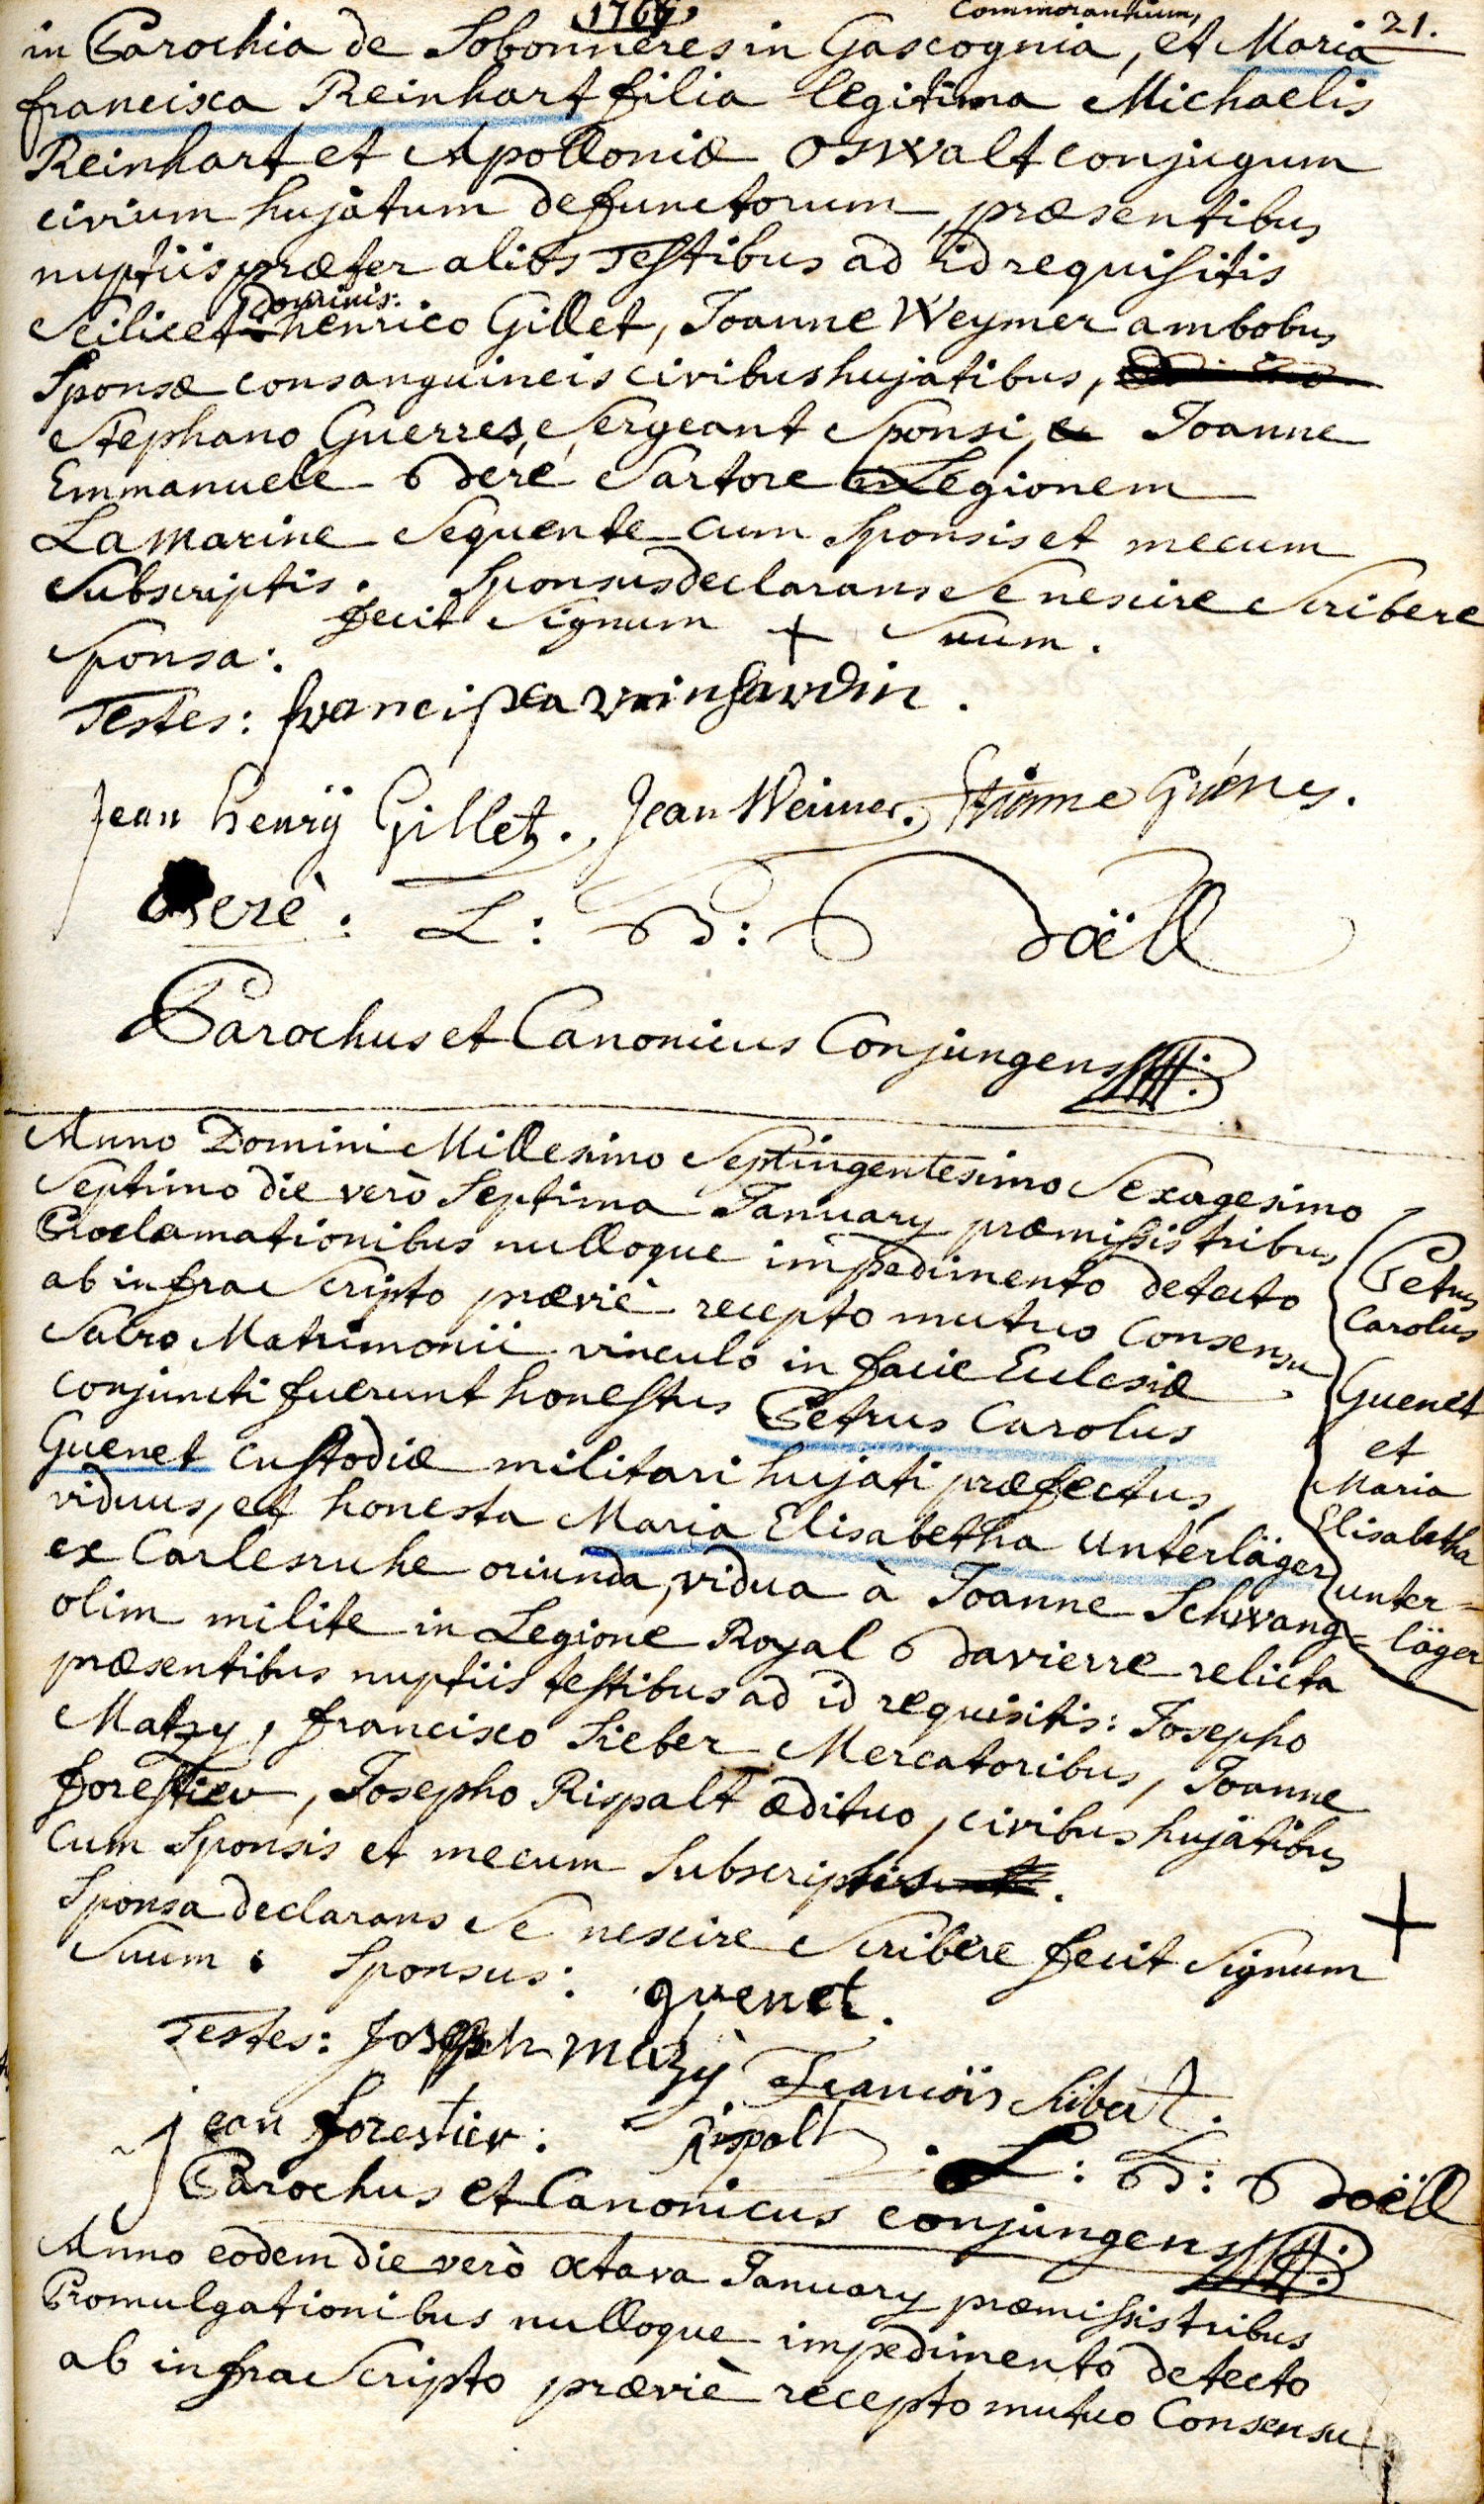 1767
21.
commorantium,
in Parochia de Sobonneres in Gascognia, et Maria
francisca Reinhart filia legitima Michaelis
Reinhart et Apolloniæ Oswalt conjugum
civium hujatum defunctorum, præsentibus
nuptiis præter alios Testibus ad id requisitis
Dominis:
Scilicet henrico Gillet, Joanne Weymer ambobus
Sponsæ consanguineis civibus hujatibus,
Stephano Guerres, Sergeant Sponsi, Joanne
Emmanuele oderé Sartore Legionem
La Marine Sequente cum Sponsis et mecum
Subscriptis. Sponsus declarans Se nescire Scribere
fecit Signum + Suum.
Sponsa:
Testes: francisca reinhardin.
Jean henrÿ Gillet. Jean Weimer. Etienne
oderè. L: B: Doëll
Parochus et Canonicus Conjungens
Anno Domini Millesimo Septingentesimo Sexagesimo
Septimo die verò Septima January præmissis tribus
Proclamationibus nulloque impedimento detecto
ab infra Scripto præviè recepto mutuo Consensu
Sacro Matrimonii vinculo in facie Ecclesiæ
conjuncti fuerunt honestus Petrus Carolus
Guenet custodiæ militari hujati præfectus,
viduus, et honesta Maria Elisabetha Unterläger
ex Carlesruhe oriunda, vidua à Joanne Schwang
olim milite in Legione Royal Bavierre relicta
præsentibus nuptiis testibus ad id requisitis: Josepho
Matzy, francisco Sieber Mercatoribus, Joanne
forestier, Josepho Rispalt ædituo, civibus hujatibus
Cum Sponsis et mecum Subscriptis.
Sponsa declarans Se nescire Scribere fecit Signum +
Suum. Sponsus: guenet.
Testes: Joseph mazÿ François Sibert.
jean forestier. Rispalt L: B: Doëll
Parochus et Canonicus conjungens
Petrus
Carolus
Guenet
et
Maria
Elisabetha
unter=
läger
Anno eodem die verò octava January præmissis tribus
Promulgationibus nulloque impedimento detecto
ab infra Scripto præviè recepto mutuo Consensu